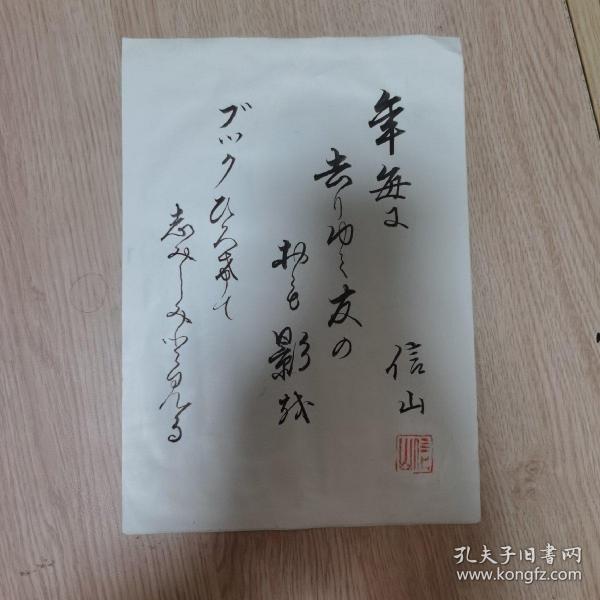 年毎に
去りゆく友の
おも影越
ブックひろ希て
志みしみと見る
信山
信山
孔夫子旧书网
www.kongfz.com